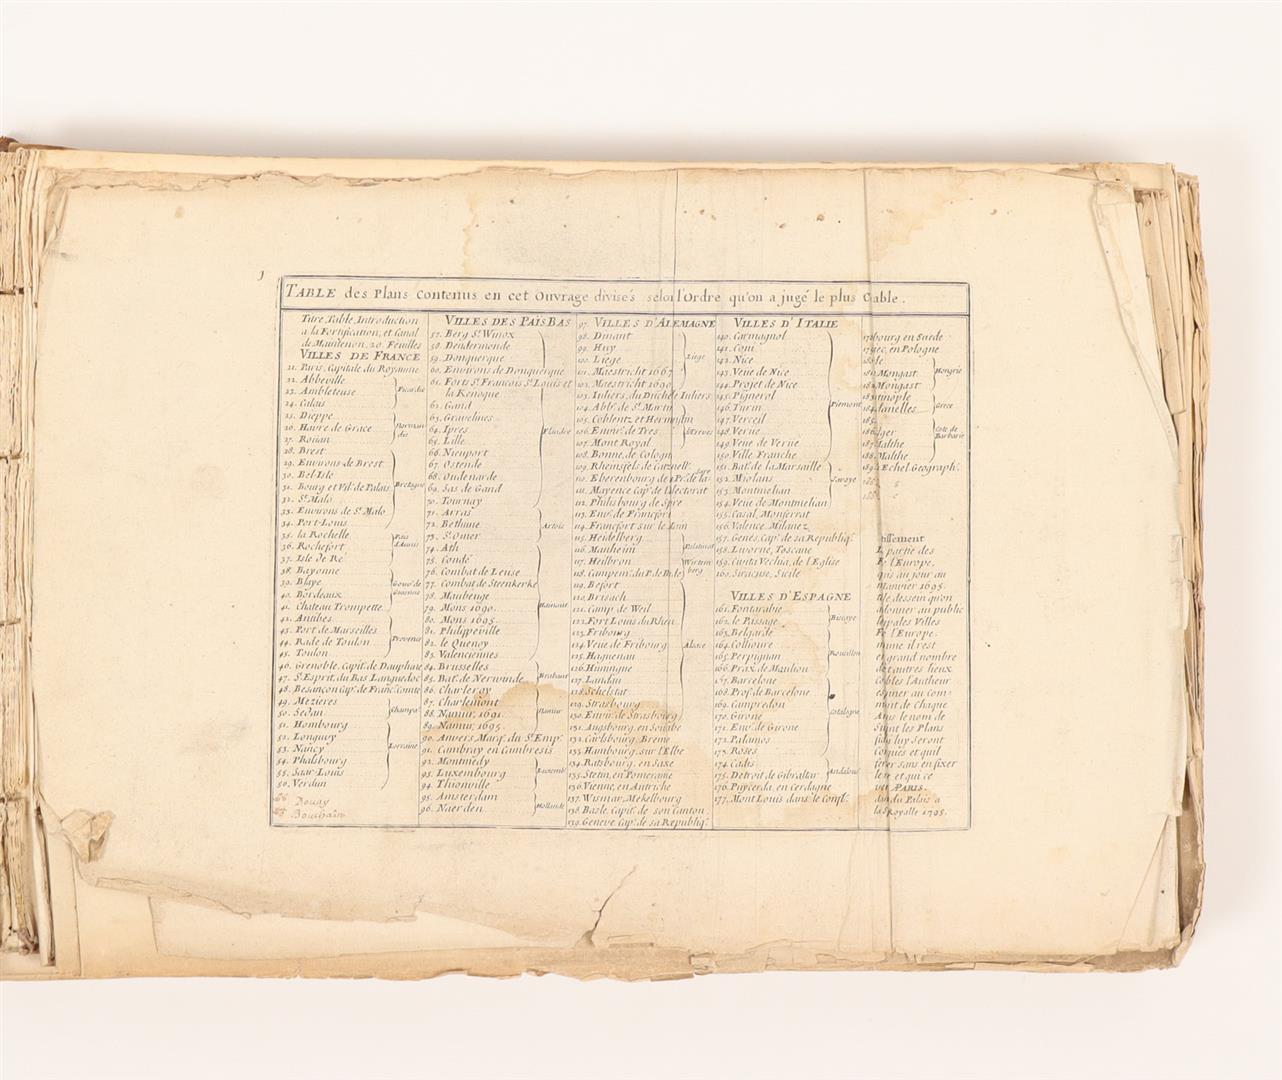 1
TABLE des Plans Contenus en cet Ouvrage divisés selon l'Ordre qu'on a jugé le plus
Titre, Table, Introduction
a la Fortification, et Canal
de Maintenon, 20 Feuilles
VILLES DE FRANCE
21. Paris, Capitale du Royaume
22. Abbeville
23. Ambleteuse
24. Calais
Picardie
25. Dieppe
26. Havre de Grace
27. Rouan
Norman
die
28. Brest
29. Environs de Brest
30. Bel-Isle
31. Bourg et Vil. de Palais
32. St. Malo
33. Environs de St. Malo
34. Port-Louis
Bretagne
35. la Rochelle
36. Rochefort
37. Isle de Ré
Païs
d'Aunis
38. Bayonne
39. Blaye
40. Bordeaux
41. Chateau Trompette
Gouv. de
Guienne
42. Antibes
43. Port de Marseilles
44. Rade de Toulon
45. Toulon
Provence
46. Grenoble, Capit. de Dauphine
47. St. Esprit, du Bas Languedoc
48. Besançon Cap. de Franc. Comte
49. Mezieres
50. Sedan
Champa.
51. Hombourg
52. Longwy
53. Nancy
54. Phalsbourg
55. Saar-Louis
56. Verdun
Lorraine
Douay
Bouchain
VILLES DES PAÏS BAS
57. Berg St. Winox
58. Dendermonde
59. Donquerque
60. Environs de Donquerque
61. Forts St. Francois St. Louis et
la Kenoque
62. Gand
63. Gravelines
64. Ipres
65. Lille
66. Nieuport
67. Ostende
68. Oudenarde
69. Sas de Gand
70. Tournay
Flandre
71. Arras
72. Bethune
73. St. Omer
Artois
74. Ath
75. Condé
76. Combat de Leuse
77. Combat de Steenkerke
78. Maubeuge
79. Mons 1690.
80. Mons 1695.
81. Philipeville
82. le Quenoy
83. Valenciennes
Hainault
84. Brusselles
85. Bat. de Nerwinde
86. Charleroy
Brabant
87. Charlemont
88. Namur, 1691
89. Namur, 1695
Namur
90. Anvers, Marq. du St. Emp.
91. Cambray en Cambresis
92. Montmedy
93. Luxembourg
94. Thionville
Luxemb.
95. Amsterdam
96. Naerden
Hollande
97. VILLES D'ALEMAGNE
98. Dinant
99. Huy
100. Liege
101. Maestricht 1667
102. Maestricht 1690
Liege
103. Iuliers, du Duché de Iuliers
104. Abb. de St. Martin
105. Coblentz et Hermstein
106. Envir. de Tres
107. Mont Royal
108. Bonne, de Cologn
109. Rhemsfels de
110. Eberenbourg
111. Mayence Cap. de l'Electorat
112. Philisbourg de Spre
113. Env. de Francfort
114. Francfort sur le Main
115. Heidelberg
116. Manheim
Palatinat
117. Heilbron
118. Campem. du P. de B.
Wirtem
berg
119. Befort
120. Brisach
121. Camp de Weil
122. Fort Louis du Rhen
123. Fribourg
124. Veue de Fribourg
125. Haguenau
126. Huningue
127. Landau
128. Schelstat
129. Strasbourg
130. Envir. de Strasbourg
Alsace
131. Augsbourg en Souabe
132. Carlsbourg, Breme
133. Hambourg, sur l'Elbe
134. Ratsbourg, en Saxe
135. Stetin, en Pomeranie
136. Vienne, en Autriche
137. Wismar, Mekelbourg
138. Basle, Capit. de son Canton
139. Geneve, Cap. de sa Republiq.
VILLES D'ITALIE
140. Carmagnol
141. Coni
142. Nice
143. Veue de Nice
144. Projet de Nice
145. Pignerol
146. Turin
147. Verceil
148. Verue
149. Veue de Verue
150. Ville Franche
Piemont
151. Bat. de la Marsaille
152. Miolans
153. Montmelian
154. Veue de Montmelian
Savoye
155. Casal, Monferrat
156. Valence, Milanez
157. Genes, Cap. de sa Republiq.
158. Livorne, Toscane
159. Civita Vechia, de l'Eglise
160. Siracuse, Sicile
VILLES D'ESPAGNE
161. Fontarabie
162. le Passage
Biscaye
163. Belgarde
164. Collioure
165. Perpignan
166. Prax. de Mauliou
Rousillon
167. Barcelone
168. Prof. de Barcelone
169. Campredon
170. Girone
171. Env. de Girone
172. Palamos
173. Roses
Catalogne
174. Cadis
175. Detroit de Gibraltar
Andalous
176. Puycerda, en Cerdagne
177. Mont Louis dans le Confl.
bourg en Suede
en Pologne
Mongast
Mongast
Hongrie
inople
danelles
Grece
lger
Malthe
188. Malthe
Cote de
Barbarie
189. Echel. Geograph.
tissement
partie des
l'Europe,
qui au jour au
Ianvier 1695.
dessein qu'on
adonner au public
ipales Villes
l'Europe.
mme il rest
en grand nombre
autres lieux
l'Autheur
au Com
ment de Chaque
le nom de
les Plans
luy Seront
et quil
serer sans en fixer
et qui ce
PARIS.
du Palais a
Royalle 1795.